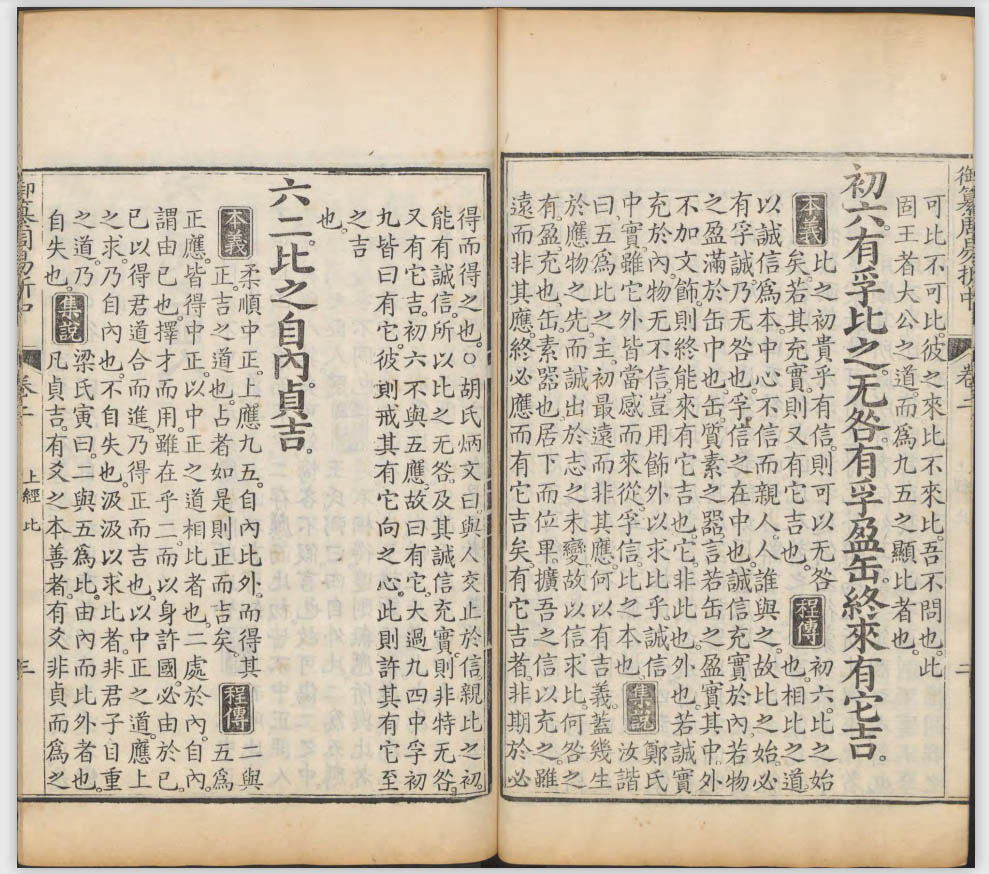 御纂周易折中 卷二 二
可比不可比。彼之來比不來比。吾不問也。此
固王者大公之道。而爲九五之顯比者也。
初六。有孚比之。无咎。有孚盈缶。終來有它吉。
本義 比之初貴乎有信。則可以无咎
矣。若其充實。則又有它吉也。
程傳 初六。比之始
也。相比之道
以誠信爲本。中心不信而親人。人誰與之。故比之始。必
有孚誠。乃无咎也。孚。信之在中也。誠信充實於內。若物
之盈滿於缶中也。缶。質素之器。言若缶之盈實其中。外
不加文飾。則終能來有它吉也。它。非此也。外也。若誠實
充於內。物无不信。豈用飾外以求比乎。誠信
中實。雖它外皆當感而來從。孚信。比之本也。
集說 鄭氏
汝諧
曰。五爲比之主。初最遠而非其應。何以有吉義。蓋幾生
於應物之先。而誠出於志之未變。故以信求比。何咎之
有。盈。充也。缶。素器也。居下而位卑。擴吾之信以充之。雖
遠而非其應。終必應。而有它吉矣。有它吉者。非期於必
得而得之也。○胡氏炳文曰。與人交止於信。親比之初。
能有誠信。所以比之无咎。及其誠信充實。則非特无咎。
又有它吉。初六不與五應。故曰有它。大過九四中孚初
九皆曰有它。彼則戒其有它向之心。此則許其有它至
之吉
也。
六二。比之自內。貞吉。
本義 柔順中正。上應九五。自內比外。而得其
正。吉之道也。占者如是。則正而吉矣。
程傳 二與
五爲
正應。皆得中正。以中正之道相比者也。二處於內。自內。
謂由己也。擇才而用。雖在乎上。而以身許國。必由於已。
已以得君道合而進。乃得正而吉也。以中正之道。應上
之求。乃自內也。不自失也。汲汲以求比者。非君子自重
之道。乃
自失也。
集說 梁氏寅曰。二與五爲比。由內而比外者也。
凡貞吉。有爻之本善者。有爻非貞而爲之
御纂周易折中 卷二 上經 比 三